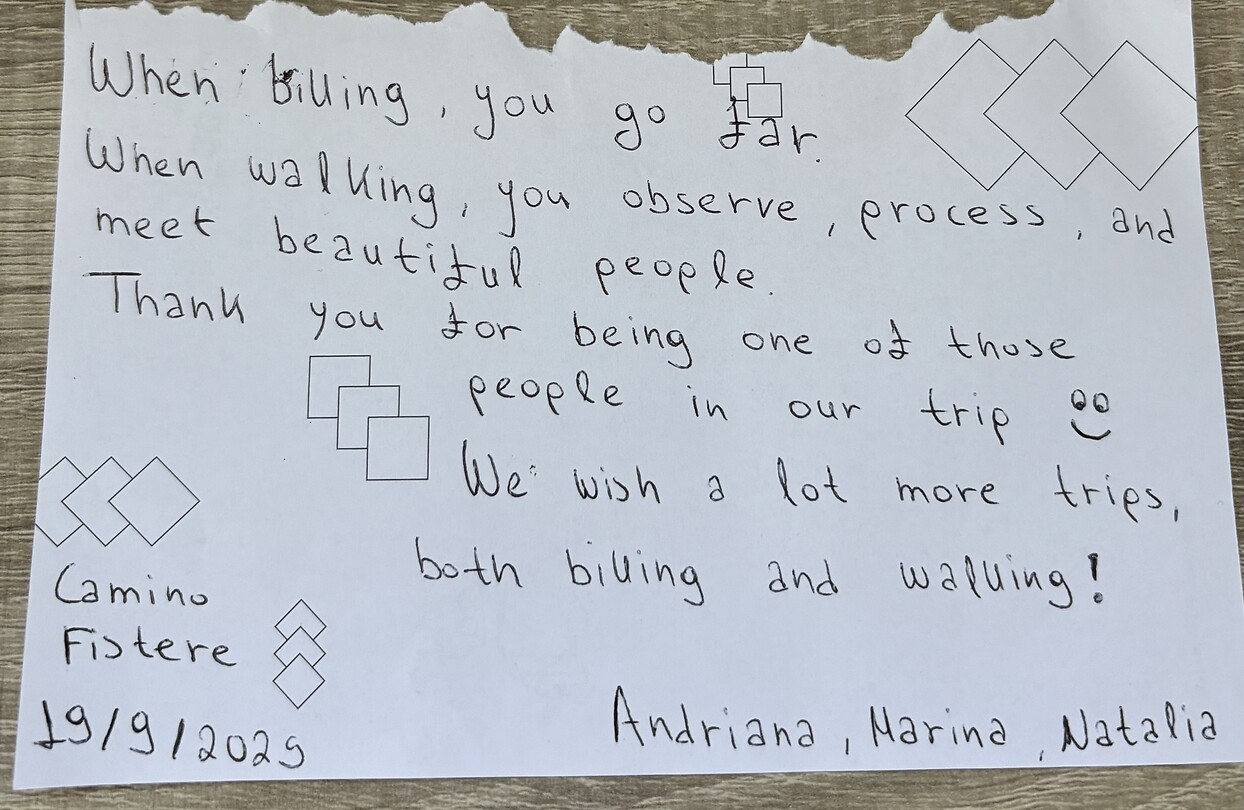 When biking, you go far.
When walking, you observe, process, and
meet beautiful people.
Thank you for being one of those
people in our trip
We wish a lot more trips,
both biking and walking!
Camino
Fistere
19/9/2025
Andriana, Marina, Natalia